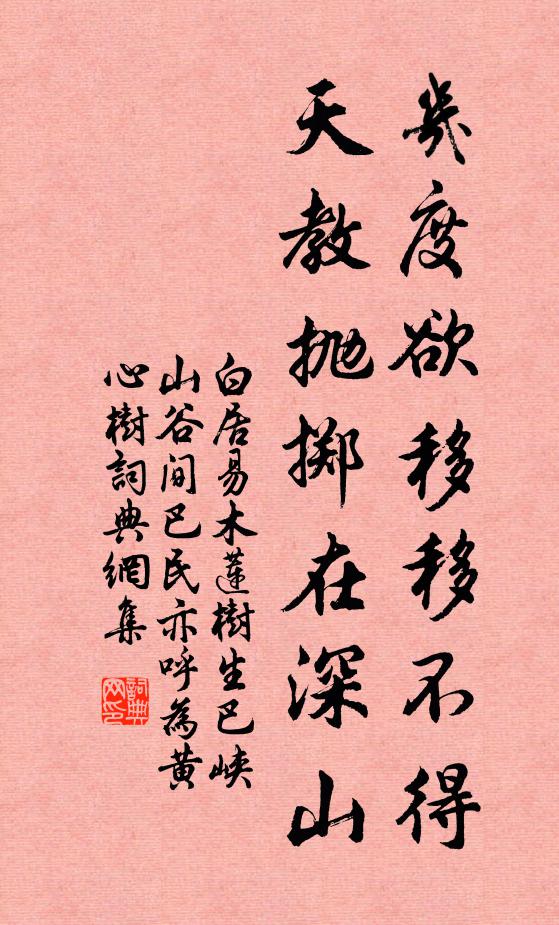 幾度欲移移不得
天教抛擲在深山
白居易木蓮樹生巴峽
山谷间巴民亦呼為黄
心樹詞典網集
詞典
网印